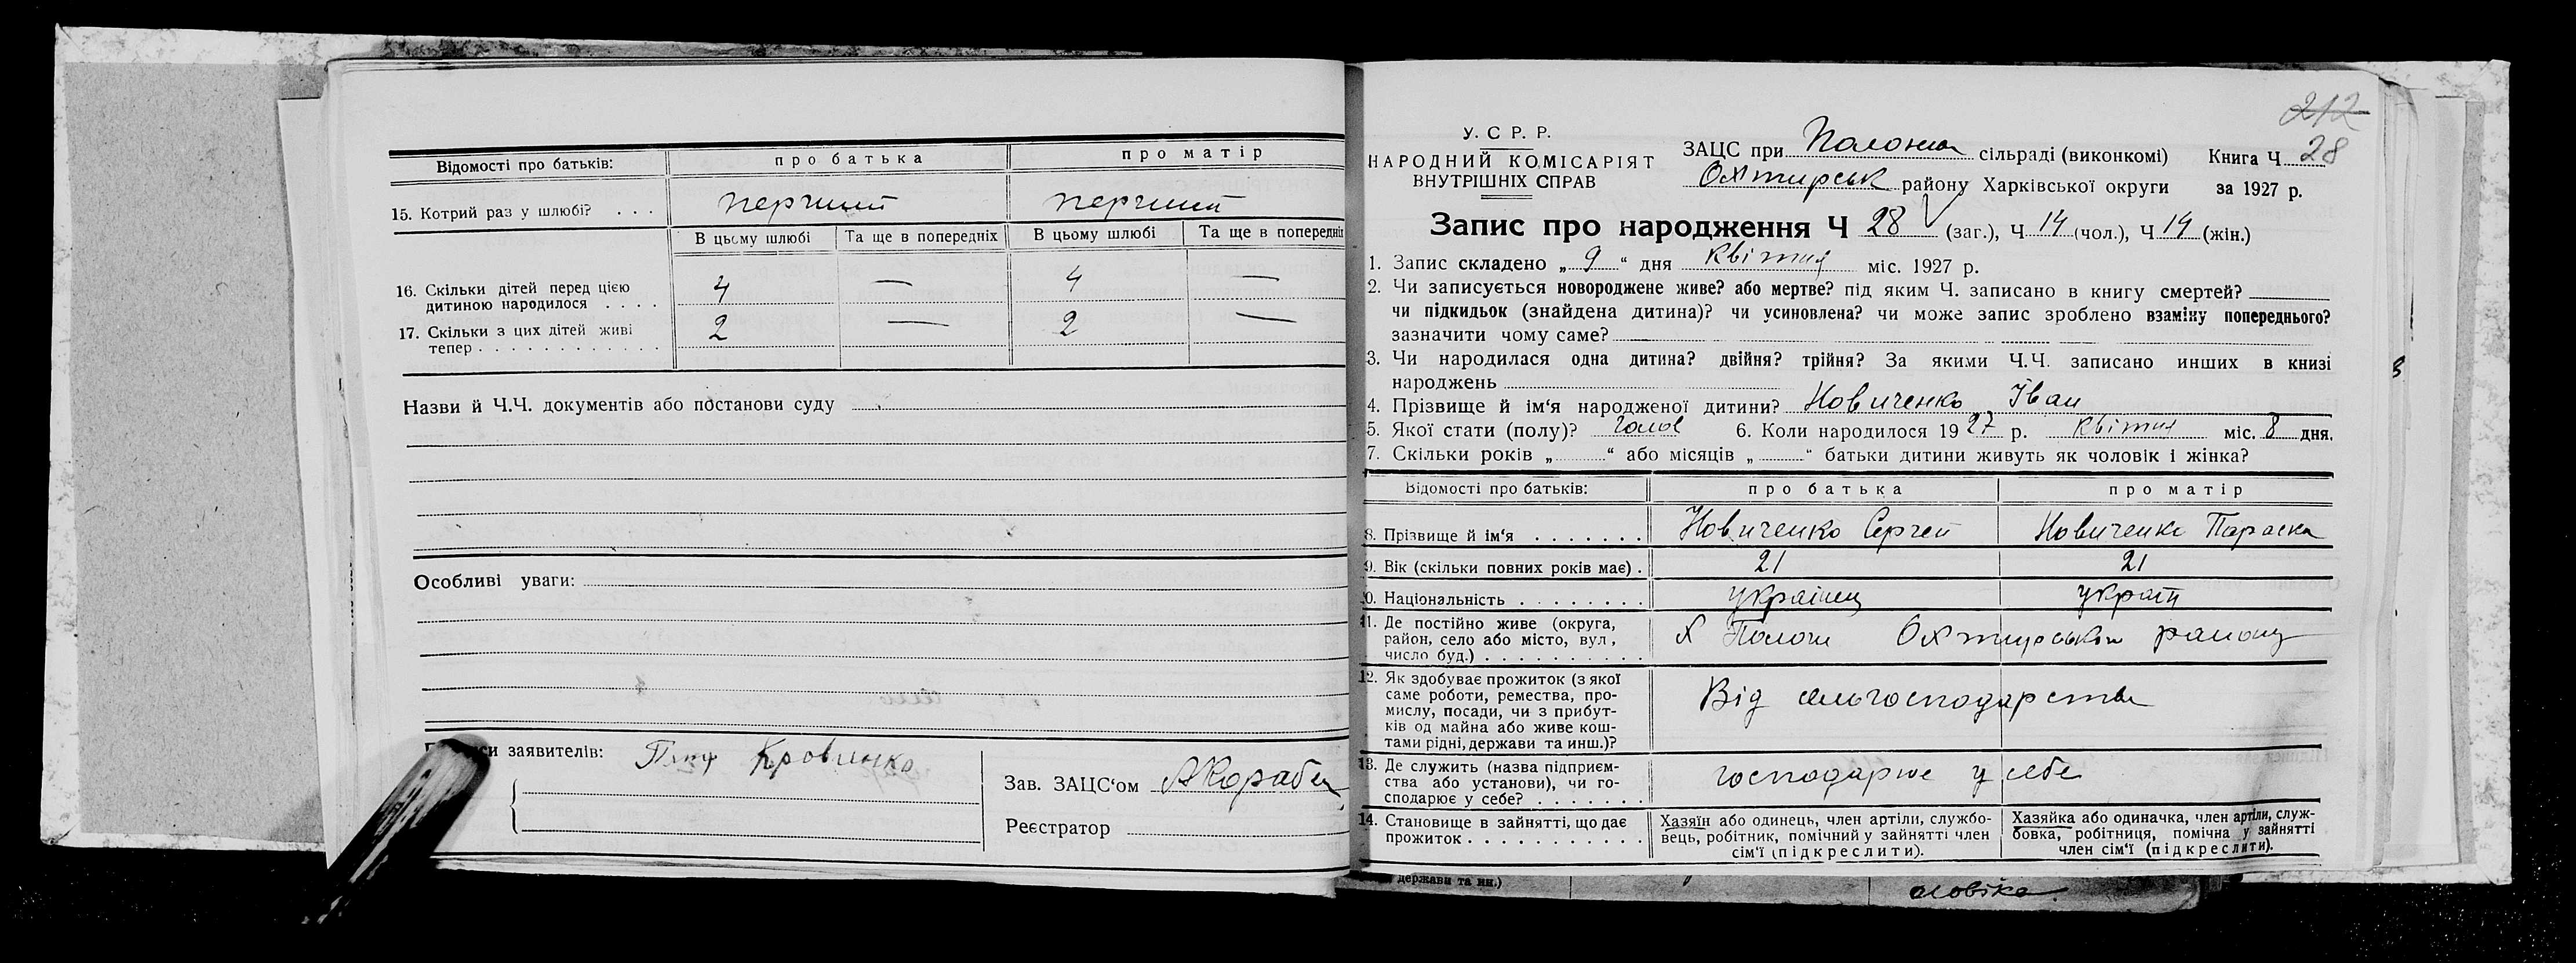 Відомості про батьків: про батька про матір
15. Котрий раз у шлюбі? . . . перший перший
В цьому шлюбі Та ще в попередніх В цьому шлюбі Та ще в попередніх
16. Скільки дітей перед цією
дитиною народилося . . . . 4 — 4 —
17. Скільки з цих дітей живі
тепер . . . . . . . . . . . . 2 — 2 —
Назви й Ч.Ч. документів або постанови суду
Особливі уваги:
заявителів: Кровченко
Зав. ЗАЦС‘ом
Реєстратор
212
У. С Р. Р.
НАРОДНИЙ КОМІСАРІЯТ
ВНУТРІШНІХ СПРАВ
ЗАЦС при сільраді (виконкомі) Книга Ч. 28
Охтирськ району Харківської округи за 1927 р.
Запис про народження Ч 28 (заг.), Ч 14 (чол.), Ч 14 (жін.)
1. Запис складено „ 9 “ дня квітня міс. 1927 р.
2. Чи записується новороджене живе? або мертве? під яким Ч. записано в книгу смертей?
чи підкидьок (знайдена дитина)? чи усиновлена? чи може запис зроблено взаміну попереднього?
зазначити чому саме?
3. Чи народилася одна дитина? двійня? трійня? За якими Ч.Ч. записано инших в книзі
народжень
4. Прізвище й ім‘я народженої дитини? Новиченко Іван
5. Якої стати (полу)? 6. Коли народилося 19 27 р. квітня міс. 8 дня.
7. Скільки років „ “ або місяців „ “ батьки дитини живуть як чоловік і жінка?
Відомості про батьків: про батька про матір
8. Прізвище й ім‘я . . . . . . . Новиченко Сергей Новиченко Параска
9. Вік (скільки повних років має) . 21 21
10. Національність . . . . . . . . українец україн
11. Де постійно живе (округа,
район, село або місто, вул,
число буд.) . . . . . . . . . . х Полози Охтирськой району
12. Як здобуває прожиток (з якої
саме роботи, ремества, про-
мислу, посади, чи з прибут-
ків од майна або живе кош-
тами рідні, держави та инш.)? Від сільгосподарства
13. Де служить (назва підприєм-
ства або установи), чи го-
сподарює у себе? . . . . . . . господарює у себе
14. Становище в зайнятті, що дає
прожиток . . . . . . . . . . .
Хазяїн або одинець, член артіли, службо-
вець, робітник, помічний у зайнятті член
сім‘ї (підкреслити).
Хазяйка або одиначка, член артіли, служ-
бовка, робітниця, помічна у зайнятті
член сім‘ї (підкреслити).
держави та ин.)